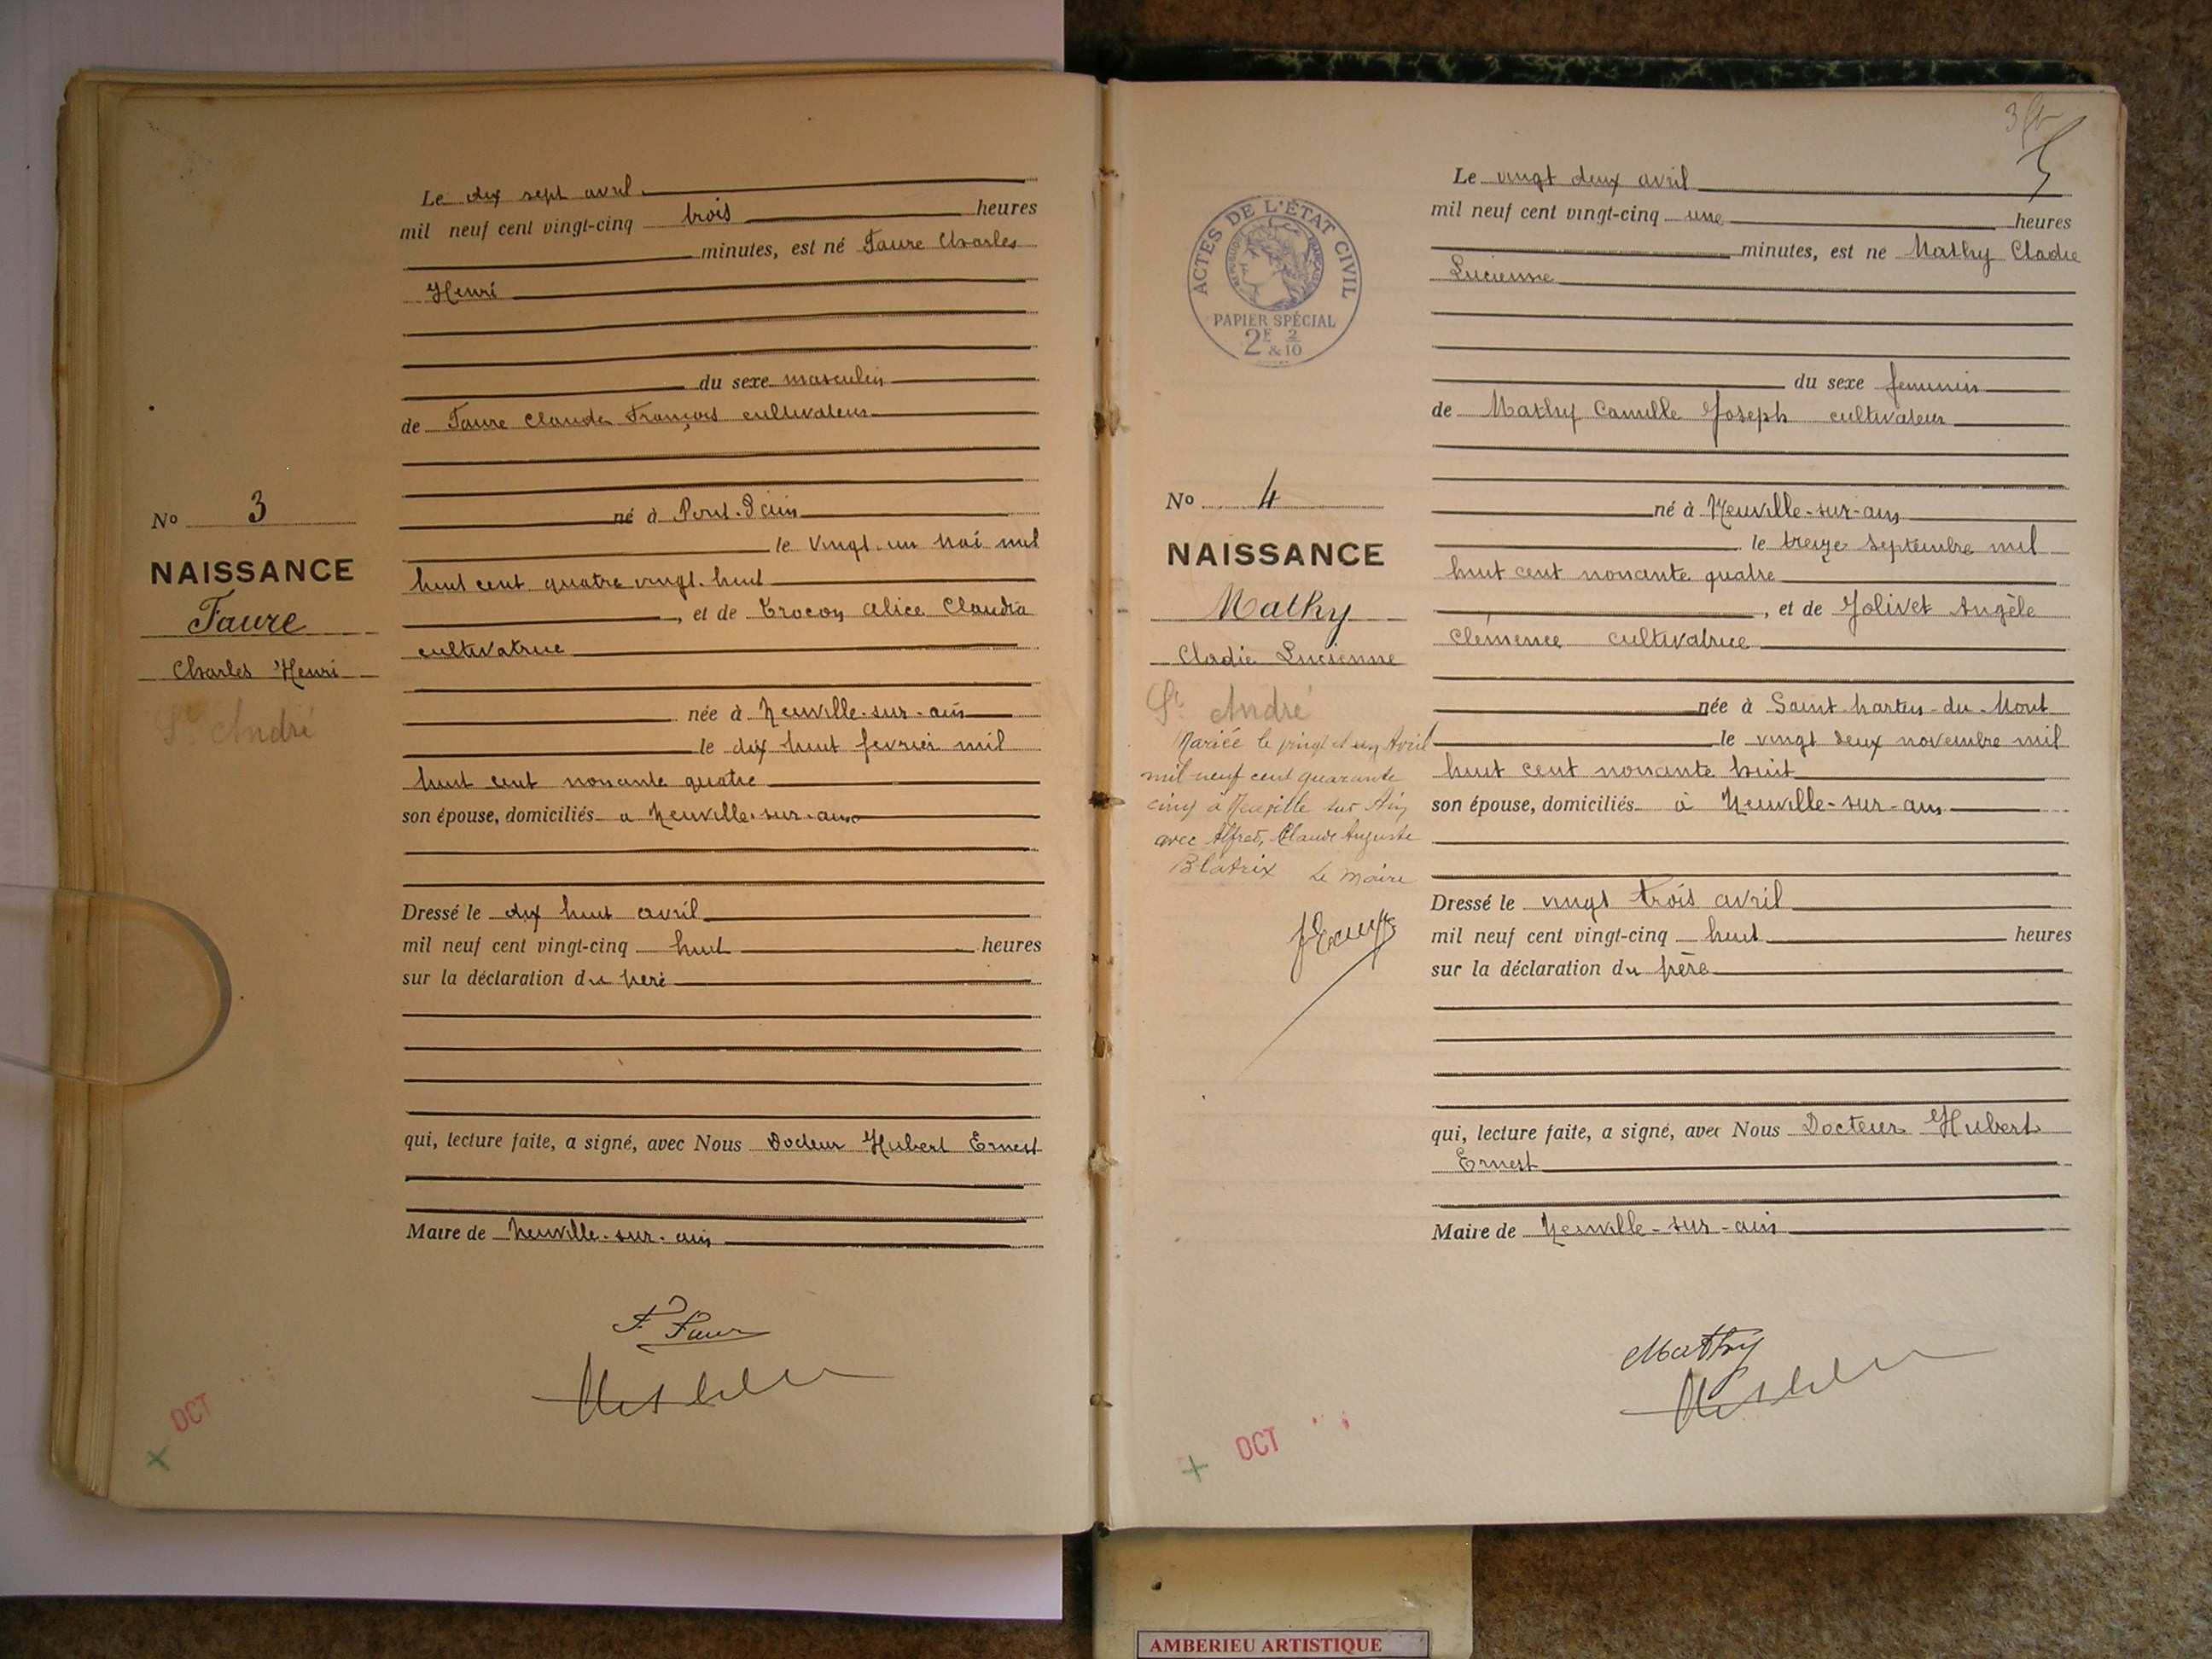 Le dix sept avril
mil neuf cent vingt-cinq trois heures
minutes, est né Faure Charles
Henri
du sexe masculin
de Faure Claude François cultivateur
né à Pont-d'ain
le vingt-un Mai mil
huit cent quatre vingt-huit
, et de Trocon Alice Claudia
cultivatrice
née à Neuville-sur-ain
le dix huit fevrier mil
huit cent nonante quatre
son épouse, domiciliés a Neuville-sur-ain
Dressé le dix huit avril
mil neuf cent vingt-cinq huit heures
sur la déclaration du père
qui, lecture faite, a signé, avec Nous Docteur Hubert Ernest
Maire de Neuville-sur-ain
No 3
NAISSANCE
Faure
Charles Henri
St André
F. Faure
OCT
3
ACTES DE L'ÉTAT CIVIL
PAPIER SPÉCIAL
2E 2
& 10
Le vingt deux avril
mil neuf cent vingt-cinq une heures
minutes, est né Mathy Cladie
Lucienne
du sexe feminin
de Mathy Camille Joseph cultivateur
né à Neuville-sur-ain
le treize septembre mil
huit cent nonante quatre
, et de Jolivet Angèle
Clémence cultivatrice
née à Saint-Martin-du-Mont
le vingt deux novembre mil
huit cent nonante huit
son épouse, domiciliés à Neuville-sur-ain
Dressé le vingt trois avril
mil neuf cent vingt-cinq huit heures
sur la déclaration du père
qui, lecture faite, a signé, avec Nous Docteur Hubert
Ernest
Maire de Neuville-sur-ain
No 4
NAISSANCE
Mathy
Cladie Lucienne
St André
Mariée le vingt et un Avril
mil neuf cent quarante
cinq à Neuville sur Ain
avec Alfred, Claude Auguste
Blatrix Le Maire
Mathy
OCT
AMBERIEU ARTISTIQUE